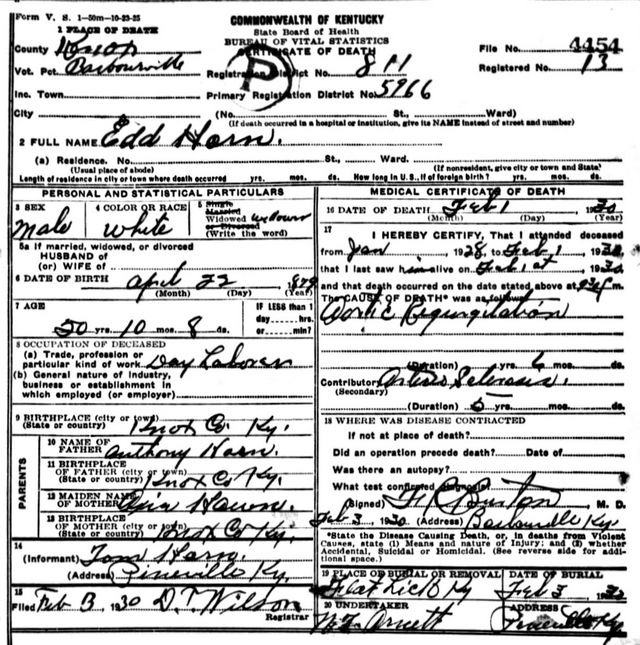 Form V. S. 1-50m-10-23-25
COMMONWEALTH OF KENTUCKY
State Board of Health
BUREAU OF VITAL STATISTICS
CERTIFICATE OF DEATH
1 PLACE OF DEATH
County Knox
File No. 4454
Vot. Pct. Barbourville
Registration District No. 811
Registered No. 13
Inc. Town
Primary Registration District No. 5966
P
City (No. St., Ward)
(If death occurred in a hospital or institution, give its NAME instead of street and number)
2 FULL NAME Edd Horn.
(a) Residence. No. St., Ward.
(Usual place of abode) (If nonresident, give city or town and State)
Length of residence in city or town where death occurred yrs. mos. ds. How long in U. S., if of foreign birth? yrs. mos. ds.
PERSONAL AND STATISTICAL PARTICULARS
3 SEX
Male
4 COLOR OR RACE
white
5 Single
Married
Widowed widower
or Divorced
(Write the word)
5a If married, widowed, or divorced
HUSBAND of
(or) WIFE of
6 DATE OF BIRTH April 22 1879
(Month) (Day) (Year)
7 AGE
50 yrs. 10 mos. 8 ds.
IF LESS than 1
day hrs.
or min?
8 OCCUPATION OF DECEASED
(a) Trade, profession or
particular kind of work Day Laborer
(b) General nature of Industry,
business or establishment in
which employed (or employer)
9 BIRTHPLACE (city or town)
(State or country) Knox Co. Ky.
PARENTS
10 NAME OF
FATHER Anthony Horn.
11 BIRTHPLACE
OF FATHER (city or town)
(State or country) Knox Co Ky.
12 MAIDEN NAME
OF MOTHER
13 BIRTHPLACE
OF MOTHER (city or town)
(State or country) Knox Co Ky.
14
(Informant) Tom Horn.
(Address) Pineville Ky.
15
Filed Feb 3, 1930 D. T. Wilson
Registrar
MEDICAL CERTIFICATE OF DEATH
16 DATE OF DEATH Feb 1 1930
(Month) (Day) (Year)
17
I HEREBY CERTIFY, That I attended deceased
from Jan 1928, to Feb 1, 1930,
that I last saw him alive on Feb 1st, 1930
and that death occurred on the date stated above at m.
The CAUSE OF DEATH* was as follows:
Aortic Regurgitation
(Duration) yrs. 6 mos. ds.
Contributory Arterio Sclerosis.
(Secondary)
(Duration) 5 yrs. mos. ds.
18 WHERE WAS DISEASE CONTRACTED
If not at place of death?
Did an operation precede death? Date of
Was there an autopsy?
What test confirmed diagnosis?
(Signed) Burton M. D.
Feb 3, 1930 (Address) Barbourville Ky.
*State the Disease Causing Death, or, in deaths from Violent
Causes, state (1) Means and nature of Injury; and (2) whether
Accidental, Suicidal or Homicidal. (See reverse side for addi-
tional space.)
19 PLACE OF BURIAL OR REMOVAL
Flat Lick Ky
DATE OF BURIAL
Feb 3 1930
20 UNDERTAKER
Arnett
ADDRESS
Pineville Ky